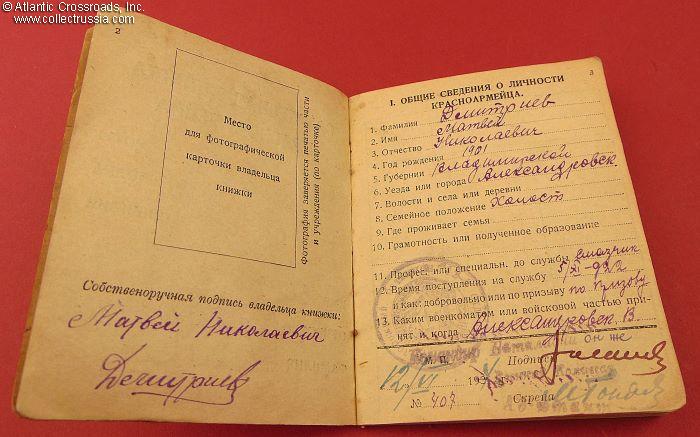 © Atlantic Crossroads, Inc.
www.collectrussia.com
2
Место
для фотографической
карточки владельца
книжки
Фотография заверяется печатью части
и учреждения (по карточке)
Собственноручная подпись владельца книжки:
Матвей Николаевич
Дмитриев
3
I. ОБЩИЕ СВЕДЕНИЯ О ЛИЧНОСТИ
КРАСНОАРМЕЙЦА.
1. Фамилия Дмитриев
2. Имя Матвей
3. Отчество Николаевич
4. Год рождения 1901
5. Губернии Владимирской
6. Уезда или города Александровск
7. Волости и села или деревни
8. Семейное положение Холост
9. Где проживает семья
10. Грамотность или полученное образование
11. Професс. или специальн. до службы смазчик
12. Время поступления на службу 5/XI-922
и как: добровольно или по призыву по призыву
13. Каким военкоматом или войсковой частью при-
нят и когда Александровск. В.
он же
М. П. Подпись
12/VI 192
Скрепа
№ 407